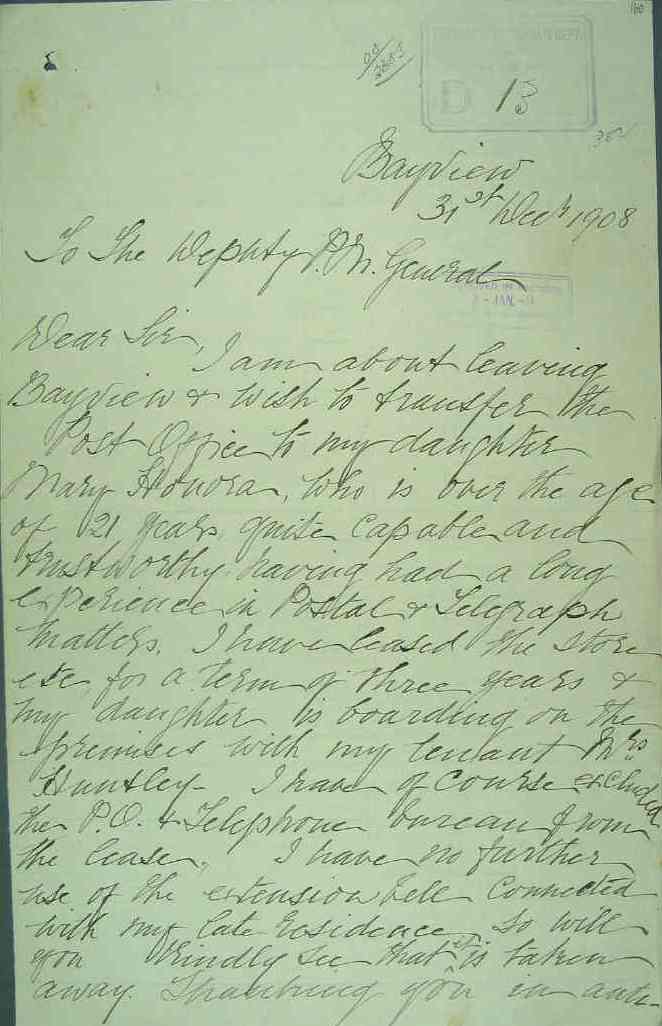 160
D 13
Bayview
31st Decr 1908
To The Deputy P.M. General
Dear Sir,
I am about leaving
Bayview & wish to transfer the
Post Office to my daughter
Mary Honora, who is over the age
of 21 years, quite capable and
trustworthy having had a long
experience in Postal & Telegraph
matters. I have leased the store
etc, for a term of three years &
my daughter is boarding on the
premises with my tenant Mrs
Huntley - I have of course excluded
the P.O. & Telephone bureau from
the lease. I have no further
use of the extension bell connected
with my late residence, so will
you kindly see that it is taken
away. Thanking you in anti-